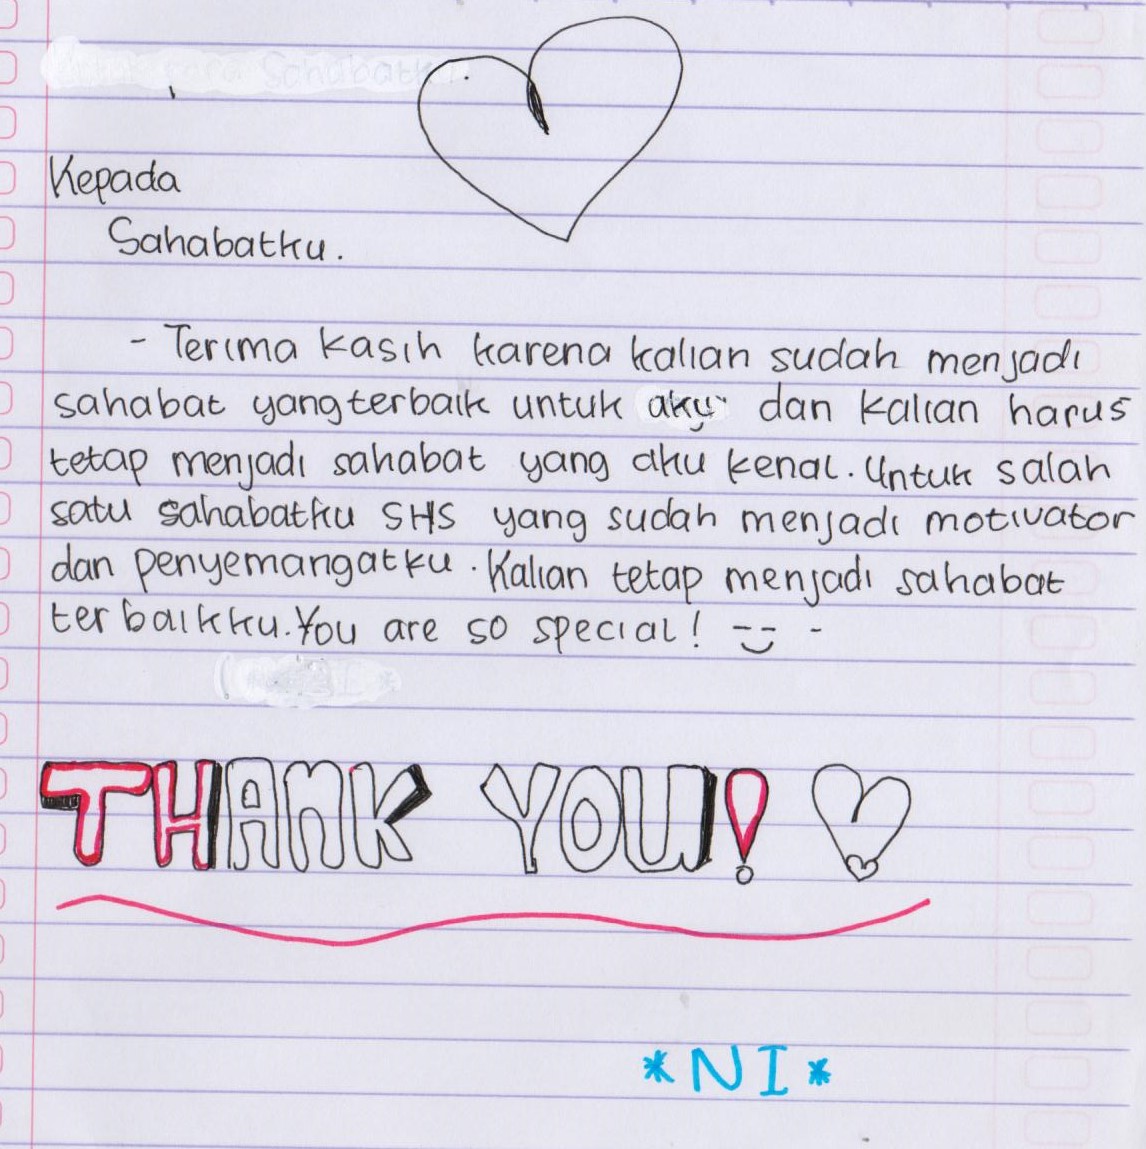 Kepada
Sahabatku.
- Terima kasih karena kalian sudah menjadi
sahabat yang terbaik untuk aku dan kalian harus
tetap menjadi sahabat yang aku kenal. Untuk salah
satu sahabatku SHS yang sudah menjadi motivator
dan penyemangatku. Kalian tetap menjadi sahabat
terbaikku. You are so special! -
THANK YOU!
*NI*